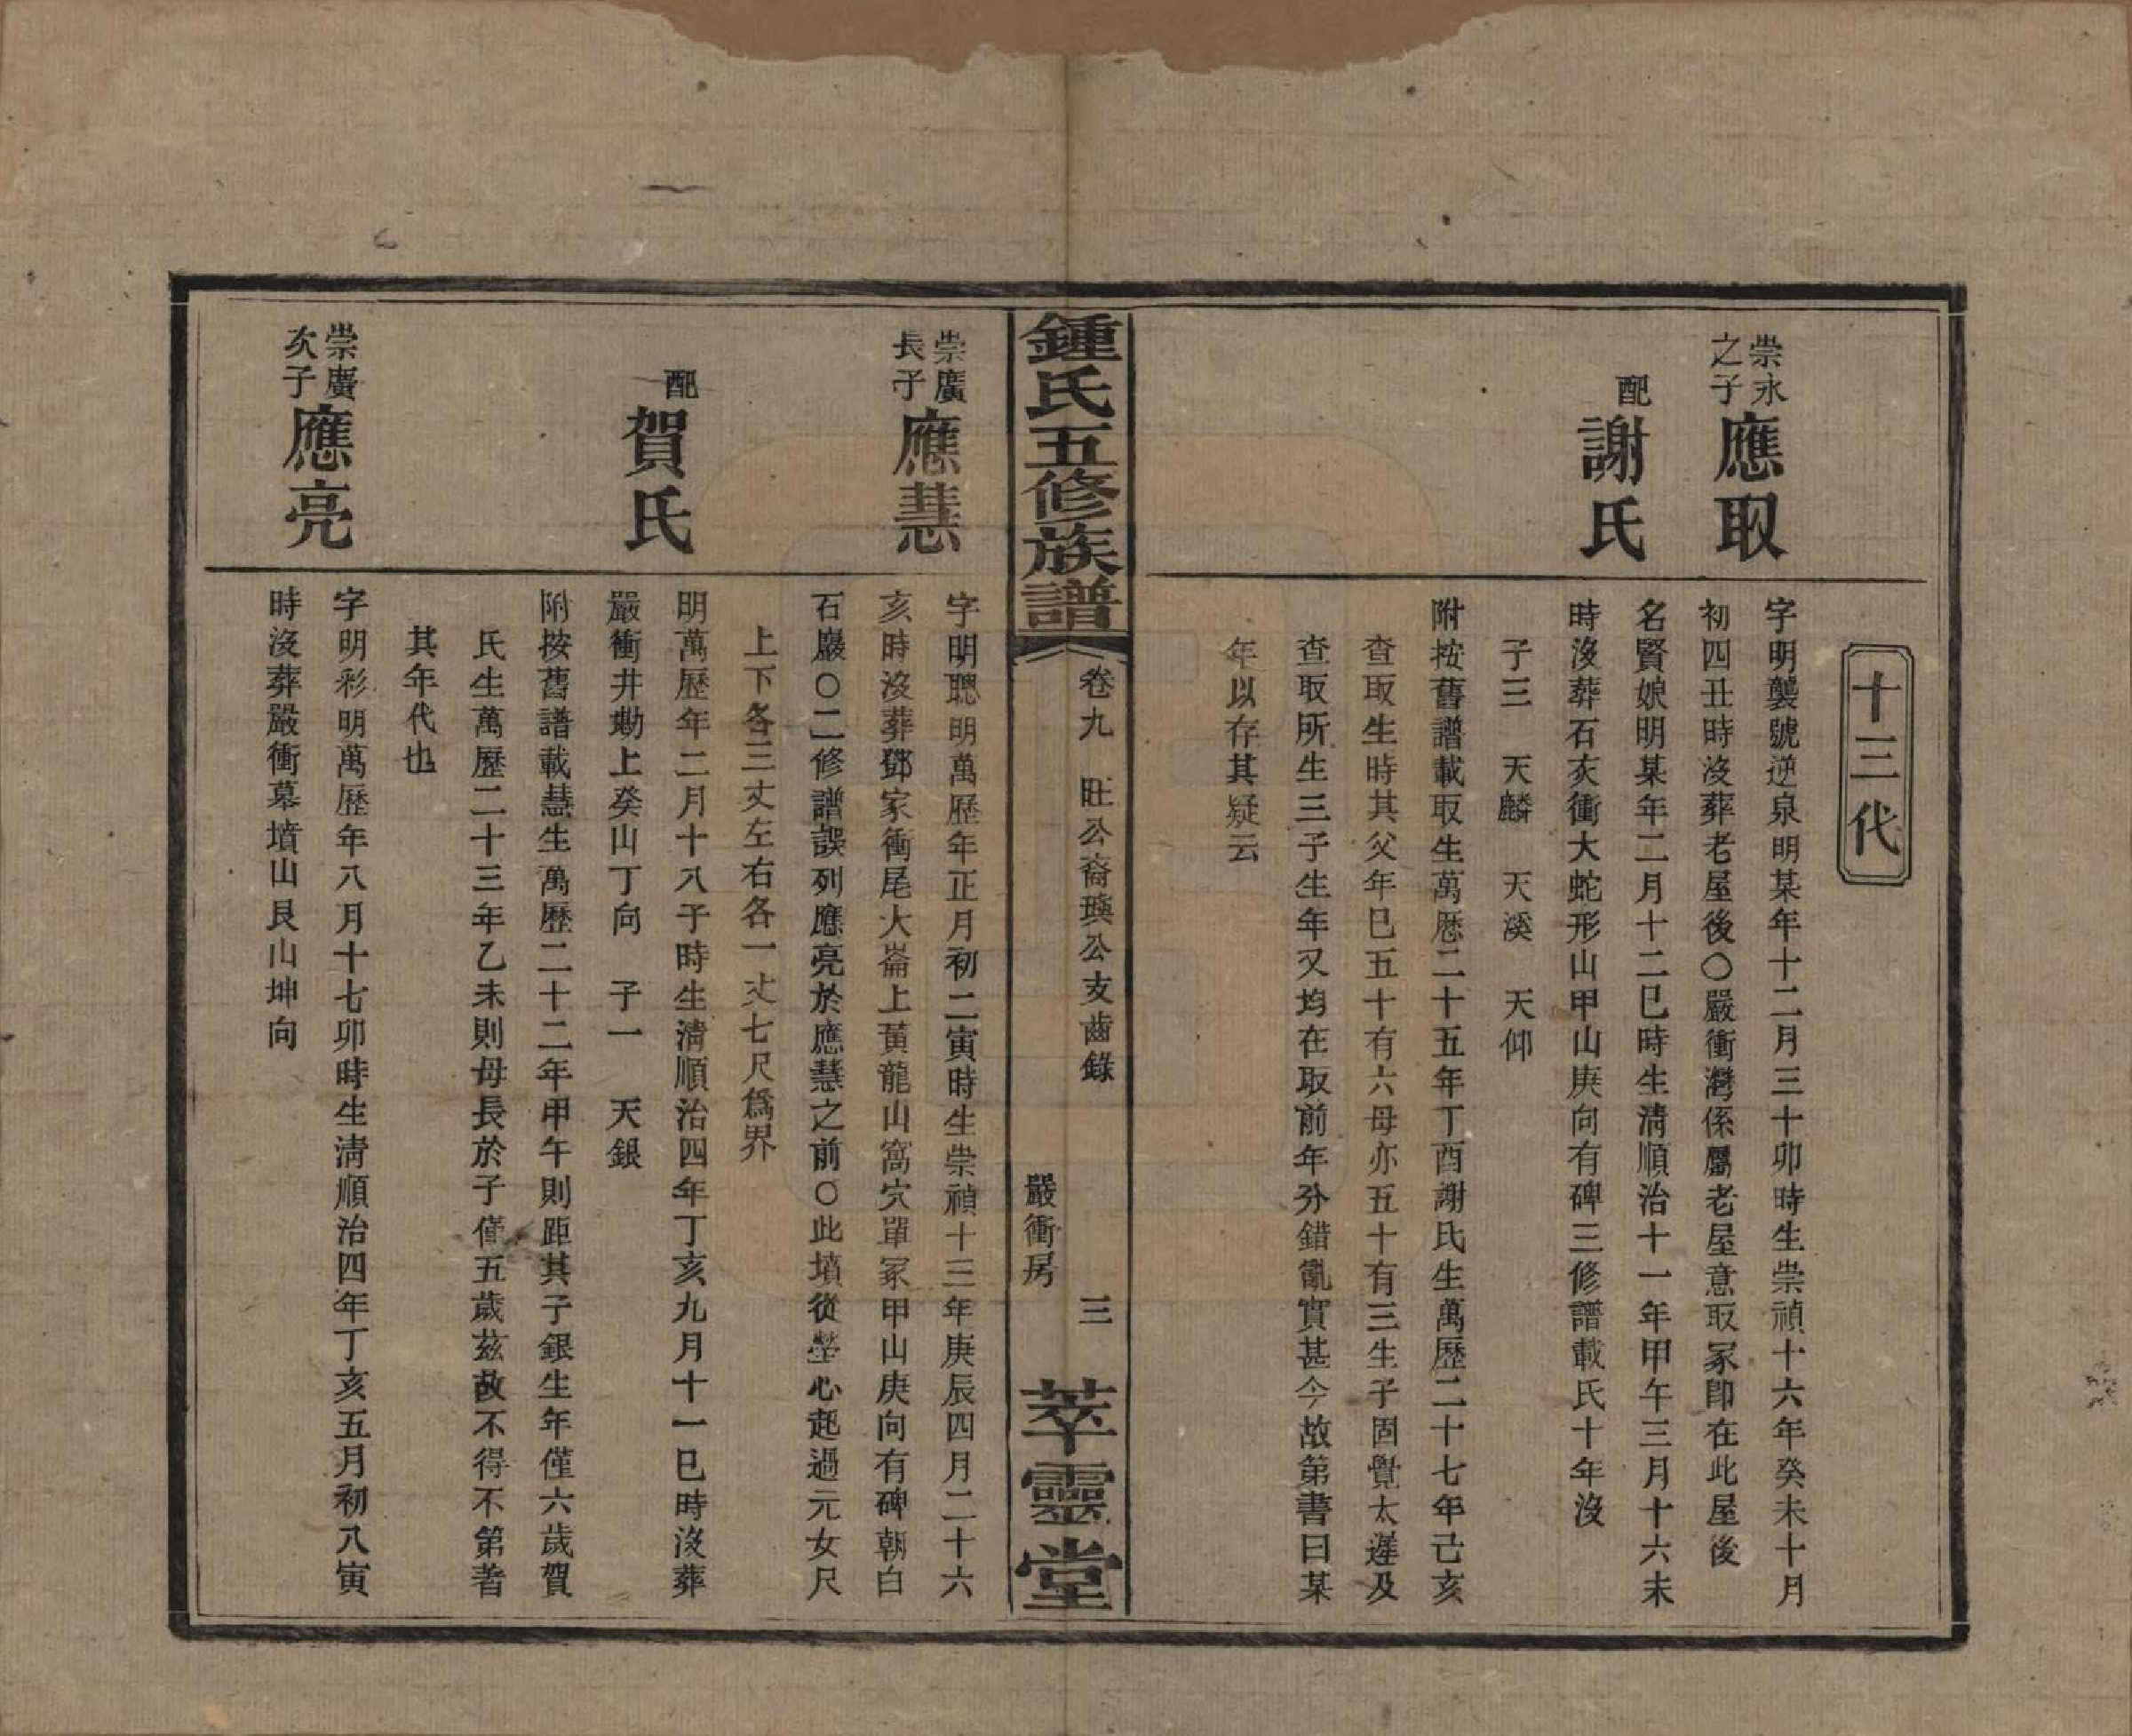 十三代
崇永之子
應取
字明襲號逆泉明某年十二月三十卯時生崇禎十六年癸未十月
初四丑時沒葬老屋後○嚴衝灣係屬老屋意取冢即在此屋後
配
謝氏
名賢娘明某年二月十二巳時生清順治十一年甲午三月十六未
時沒葬石灰衝大蛇形山甲山庚向有碑三修譜載氏十年沒
子三　天麟　天溪　天仰
附按舊譜載取生萬歷二十五年丁酉謝氏生萬歷二十七年己亥
查取生時其父年巳五十有六母亦五十有三生子固覺太遲及
查取所生三子生年又均在取前年分錯亂實甚今故第書曰某
年以存其疑云
鍾氏五修族譜
卷九　旺公裔璵公支齒錄
嚴衝房
三
萃靈堂
崇廣長子
應慧
字明聰明萬歷年正月初二寅時生崇禎十三年庚辰四月二十六
亥時沒葬鄧家衝尾大崙上黃龍山窩穴單冢甲山庚向有碑朝白
石巖○二修譜誤列應亮於應慧之前○此墳從塋心起過元女尺
上下各三丈左右各一丈七尺爲界
配
賀氏
明萬歷年二月十八子時生清順治四年丁亥九月十一巳時沒葬
嚴衝井勘上癸山丁向　子一　天銀
附按舊譜載慧生萬歷二十二年甲午則距其子銀生年僅六歲賀
氏生萬歷二十三年乙未則母長於子僅五歲茲故不得不第著
其年代也
崇廣次子
應亮
字明彩明萬歷年八月十七卯時生清順治四年丁亥五月初八寅
時沒葬嚴衝墓墳山艮山坤向